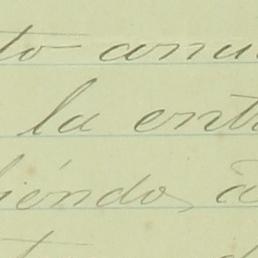 to anu
la entr
iéndo, à